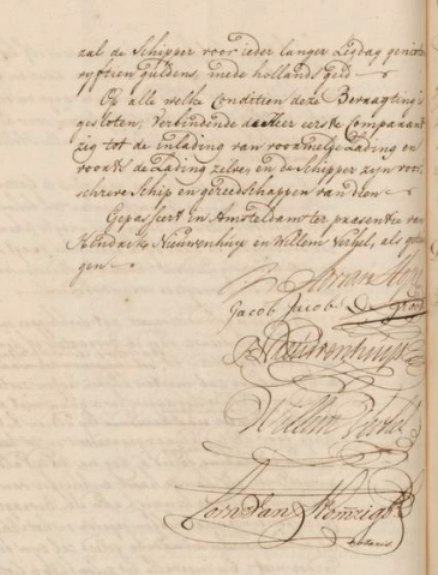 zal de Schipper voor ieder langer Legdag geniet
vyftien guldens, mede hollands geld
Op alle welke Conditien deze Bevragting is
gesloten, Verbindende de Heer eerste Comparant
zig tot de inlading van voormelde Lading en
voorts de Lading zelve, en de Schipper zyn voor
schreve Schip en gereedschappen van dien
Gepasseert in Amsteldam ter praesentie van
Hendrik Nieuwenhuys en Willem Verhel, als getui
gen
Adriaan
Jacob Jacob De
H Nieuwenhuys
Willem Verhel
Cornelis van
notaris